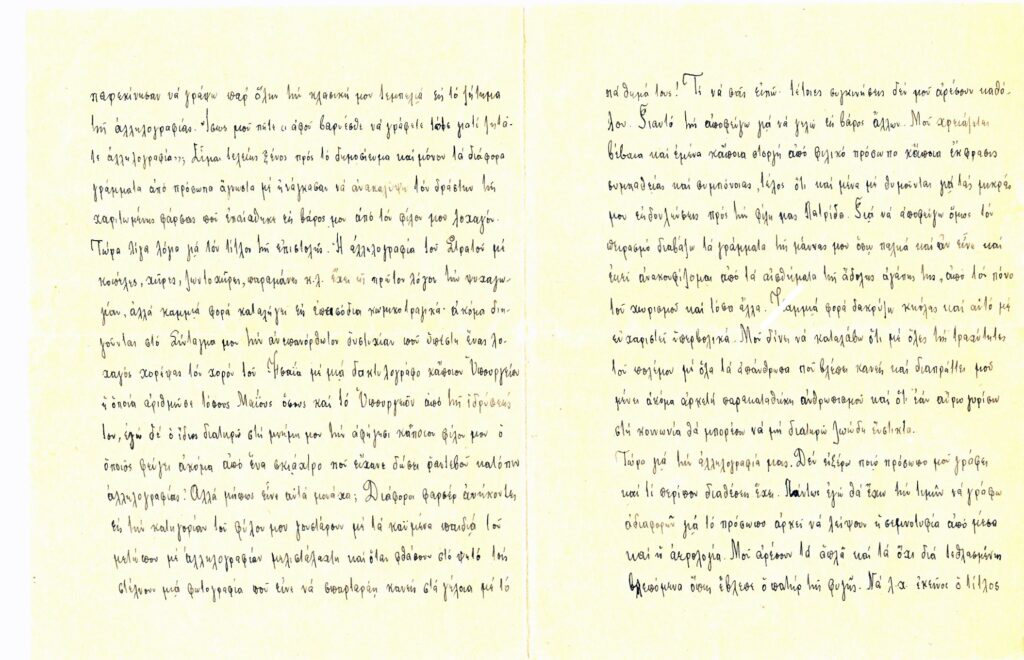 παρεκίνησαν νά γράφω παρ' ὅλην τήν κλασική μου τεμπελιά εἰς τό ζήτημα
τῆς ἀλληλογραφίας. Ἴσως μοῦ πῆτε: ἀφοῦ βαρυέσθε νά γράφετε τότε γιατί ζητᾶ-
τε ἀλληλογραφία;; Εἶμαι τελείως ξένος πρός τό δημοσίευμα καί μόνον τά διάφορα
γράμματα ἀπό πρόσωπα ἄγνωστα μέ ἠνάγκασαν νά ἀνακαλύψω τόν δράστην τῆς
χαριτωμένης φάρσας πού ἐπαίχθηκε εἰς βάρος μου ἀπό τόν φίλον μου λοχαγόν.
Τώρα λίγα λόγια γιά τόν τίτλον τῆς ἐπιστολῆς. Ἡ ἀλληλογραφία τοῦ Στρατοῦ μέ
κοπέλες, χῆρες, ζωντοχῆρες, παραμάνες κ.λ. ἔχει ὡς πρῶτον λόγον τήν ψυχαγω-
γίαν, ἀλλά καμμιά φορά καταλήγει εἰς ἐπεισόδια κωμικοτραγικά· ἀκόμα διη-
γοῦνται στό Σύνταγμά μου τήν ἀνεπανόρθωτον δυστυχίαν πού ὑπέστη ἕνας λο-
χαγός χορέψας τόν χορόν τοῦ Ἡσαΐα μέ μιά δακτυλογράφο κάποιου Ὑπουργείου
ἡ ὁποία ἀριθμοῦσε τόσους Μαΐους ὅσους καί τό Ὑπουργεῖον ἀπό τῆς ἱδρύσεώς
του, ἐγώ δέ ὁ ἴδιος διατηρῶ στή μνήμη μου τήν ἀφήγησι κάποιου φίλου μου ὁ
ὁποῖος φεύγει ἀκόμα ἀπό ἕνα σκιάχτρο πού εἴχανε δώσει ραντεβού κατόπιν
ἀλληλογραφίας! Ἀλλά μήπως εἶνε αὐτά μονάχα; Διάφοροι φαρσέρ ἀνήκοντες
εἰς τήν κατηγορίαν τοῦ φίλου μου γουστάρουν μέ τά καϋμένα παιδιά τοῦ
μετώπου μέ ἀλληλογραφίαν μελιστάλαχτη καί ὅταν φθάσουν στό ψητό τούς
στέλνουν μιά φωτογραφία πού εἶνε νά σπαρταράῃ κανείς στά γέλοια μέ τό
πάθημά τους! Τί νά σᾶς εἰπῶ. Τέτοιες συγκινήσεις δέν μοῦ ἀρέσουν καθό-
λου. Γιαυτό τήν ἀποφεύγω γιά νά γελῶ εἰς βάρος ἄλλων. Μοῦ χρειάζεται
βέβαια καί ἐμένα κάποια στοργή ἀπό φιλικό πρόσωπο κάποια ἔκφρασις
συμπαθείας καί συμπόνοιας, τέλος ὅτι καί μένα μέ θυμοῦνται γιά τάς μικράς
μου ἐκδουλεύσεις πρός τήν φίλη μας Πατρίδα. Γιά νά ἀποφεύγω ὅμως τόν
πειρασμό διαβάζω τά γράμματα τῆς μάννας μου ὅσῳ παληά καί ἄν εἶνε καί
ἐκεῖ ἀνακουφίζομαι ἀπό τά αἰσθήματα τῆς ἄδολης ἀγάπης της, ἀπό τόν πόνο
τοῦ χωρισμοῦ καί τόσα ἄλλα. Καμμιά φορά δακρύζω κιόλας καί αὐτό μέ
εὐχαριστεῖ ὑπερβολικά. Μοῦ δίνει νά καταλάβω ὅτι μέ ὅλες τῆς τραχύτητες
τοῦ πολέμου μέ ὅλα τά ἀπάνθρωπα πού βλέπει κανείς καί διαπράττει μοῦ
μένει ἀκόμα ἀρκετή παρακαταθήκη ἀνθρωπισμοῦ καί ὅτι ἐάν αὔριο γυρίσω
στή κοινωνία θά μπορέσω νά μή διατηρῶ ζωώδη ἔνστικτα.
Τώρα γιά τήν ἀλληλογραφία μας. Δέν εἰξέρω ποιό πρόσωπο μοῦ γράφει
καί τί περίπου διαθέσεις ἔχει. Πάντως ἐγώ θά ἔχω τήν τιμήν νά γράφω
ἀδιαφορῶν γιά τό πρόσωπο ἀρκεῖ νά λείψουν ἡ σεμνοτυφία ἀπό μέσα
καί ἡ ἀερολογία. Μοῦ ἀρέσουν τά ἁπλᾶ καί τά ὄχι διά τεθλασμένης
βλεπόμενα ὅπως ἔβλεπε ὁ πατήρ τῆς φυγῆς. Νά λ.χ. ἐκεῖνος ὁ τίτλος